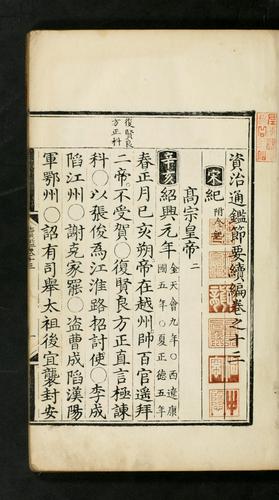 資治通鑑節要續編卷之十二
宋紀 附金
高宗皇帝二
辛亥紹興元年 金天會九年○西遼康國五年○夏正德五年
春正月己亥朔帝在越州帥百官遥拜
二帝不受賀○復賢良方正直言極諫
科○以張俊為江淮路招討使○李成
陷江州○謝克家罷○盗曹成陷漢陽
軍鄂州○詔有司舉太祖後宜襲封安
復賢良
方正科